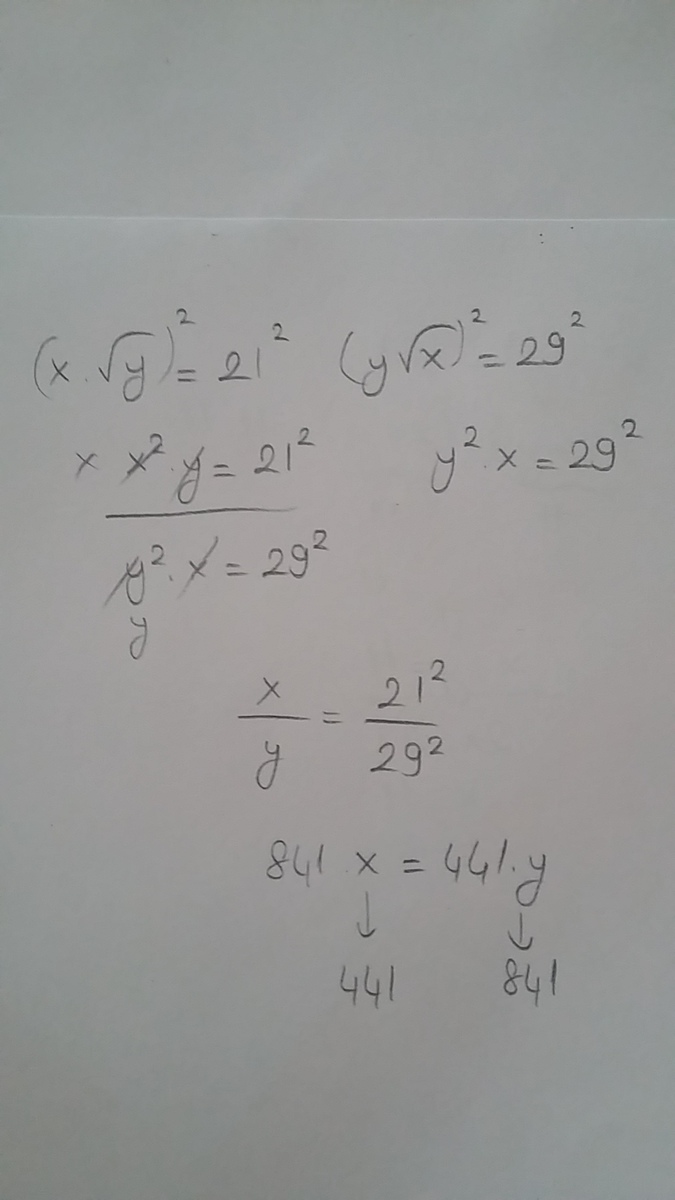 (x.√y)² = 21² (y√x)² = 29²
x x².y = 21² y².x = 29²
y².x = 29²
y
x/y = 21²/29²
841 x = 441.y
↓ ↓
441 841